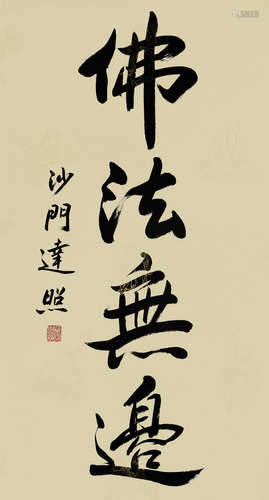 佛法無邊
沙門達照